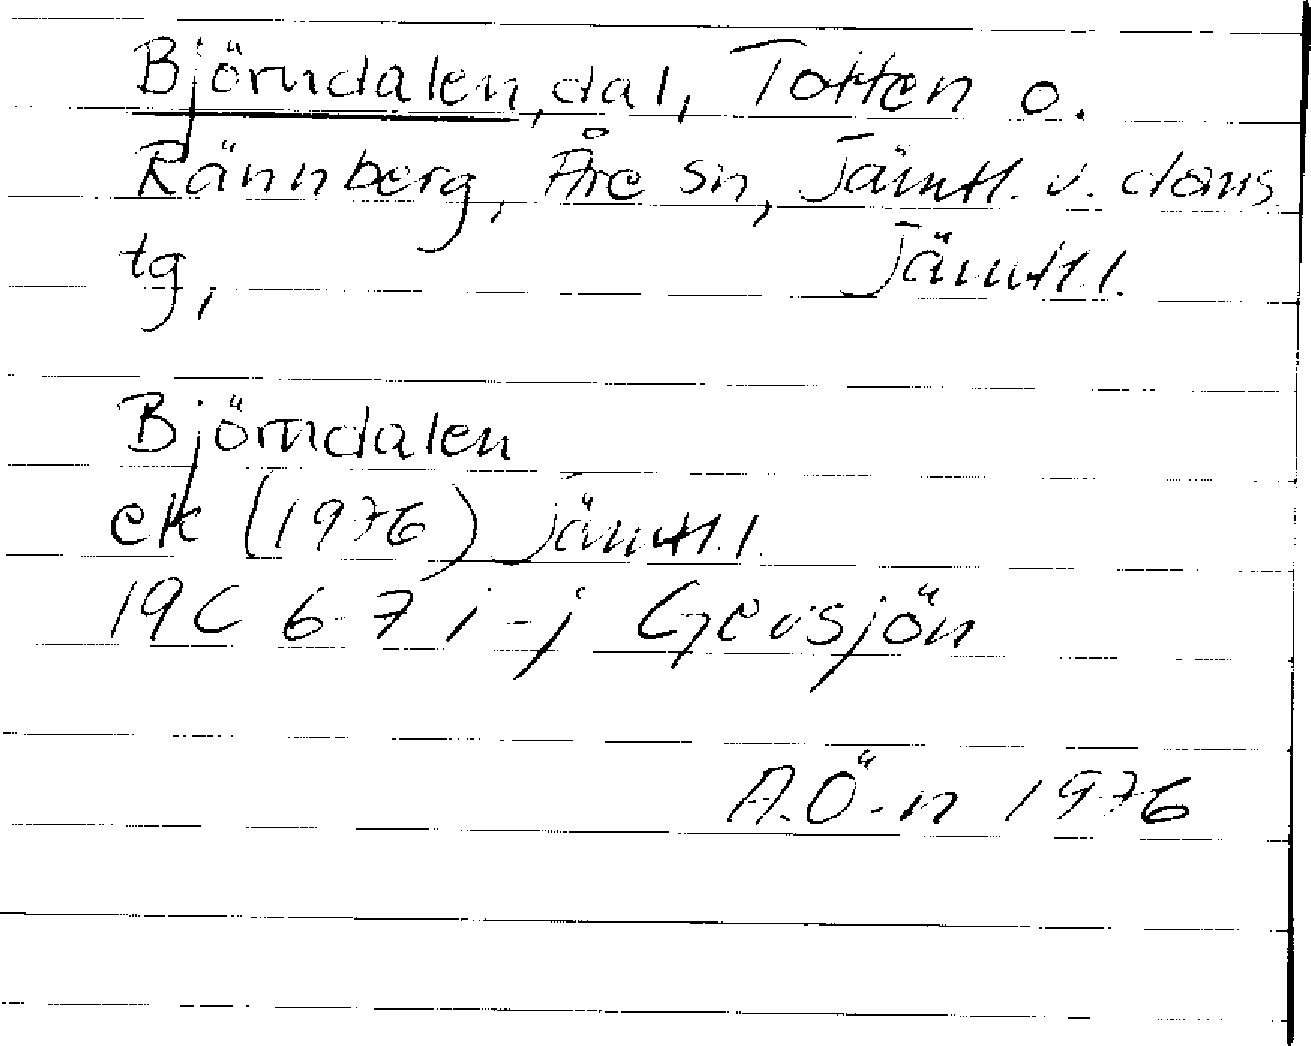 Björndalen, dal, Totten o.
Rännberg, Åre sn, Jämtl. v. doms
tg,                    Jämtl.l.
Björndalen
ek (1976) Jämtl.l.
19C 6-7 i-j Gevsjön
A.Ö-n 1976